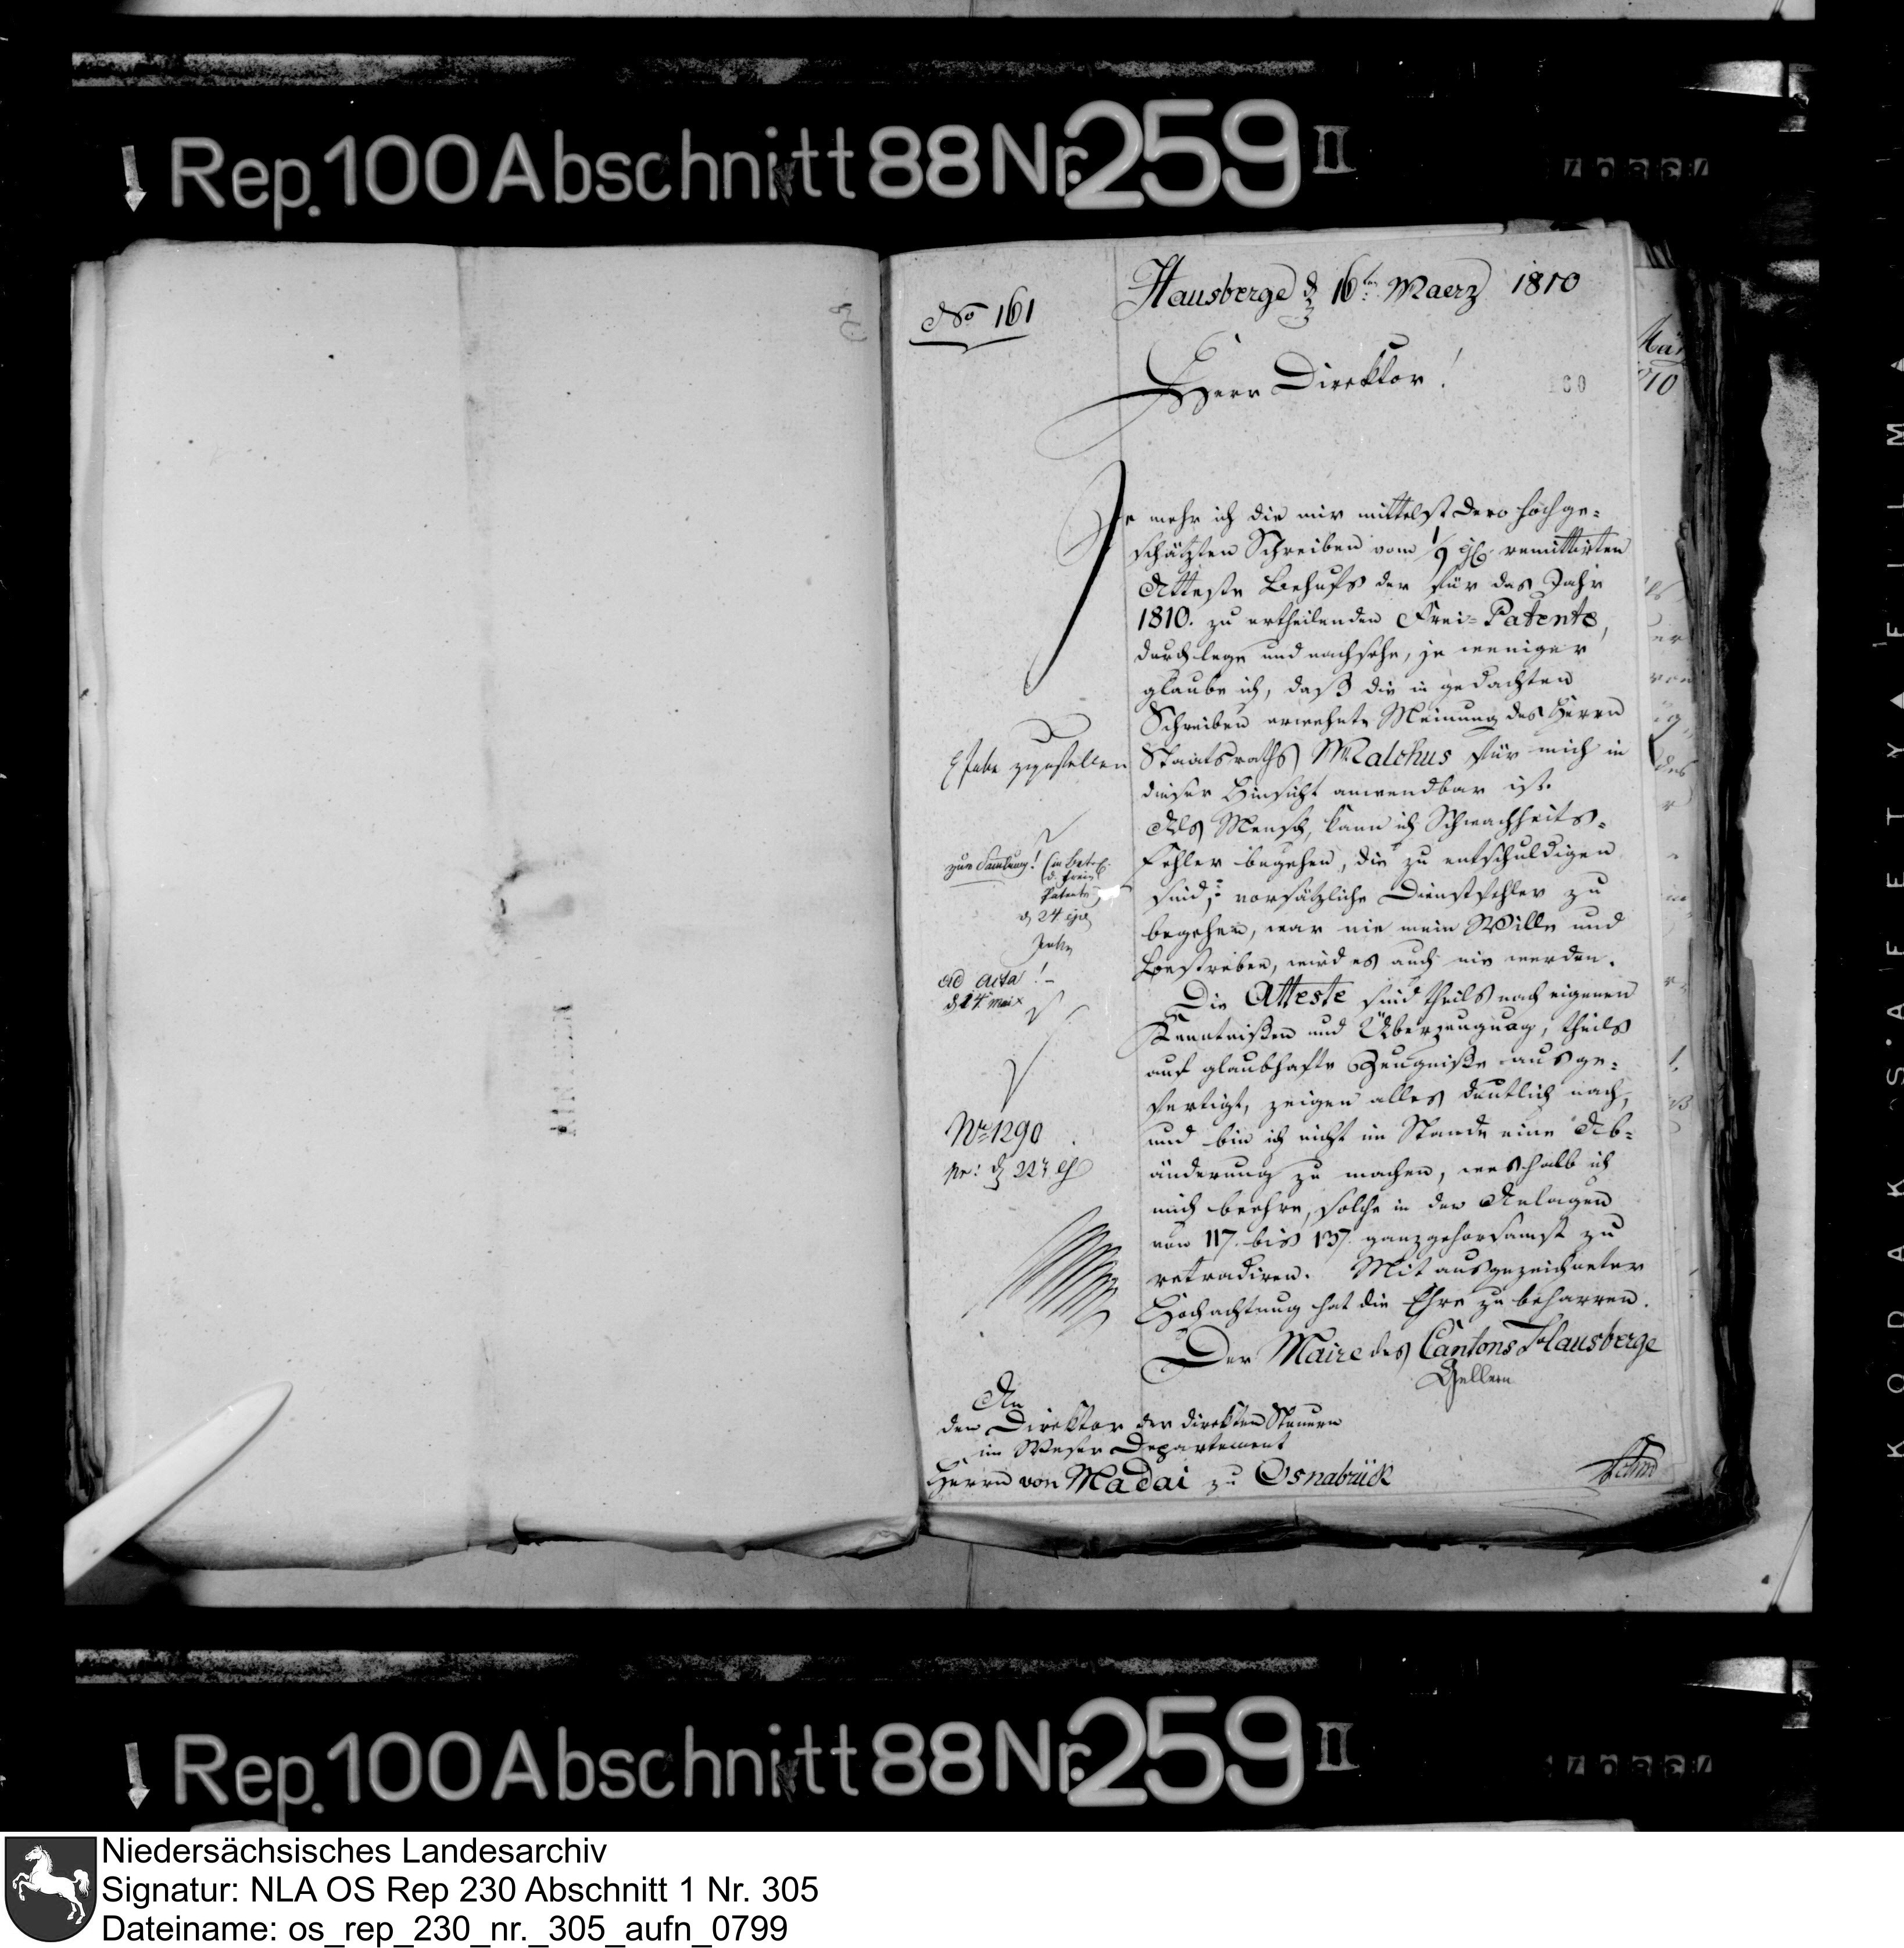 Rep. 100 Abschnitt 88 Nr. 259 II
No 161
Hausberge d 16ten Maerz 1810
Herr Direktor!
Je mehr ich die mir mittelst dero hochge=
schätzten Schreiben vom 1/9 remittirten
Atteste Behufs der für das Jahr
1810. zu ertheilenden Frei=Patente,
durchlege und nachsehe, je weniger
glaube ich, daß die in gedachten
Schreiben erwehnte Meinung des Herrn
Staatsraths Malchus für mich in
dieser Hinsicht anwendbar ist.
Als Mensch, kann ich Schwachheits=
fehler begehen, die zu entschuldigen
sind; vorsätzliche Dienstfehler zu
begehen, war nie mein Wille und
Bestreben, wird es auch nie werden.
Die Atteste sind theils nach eigenen
Kenntnißen und Überzeugung, theils
auf glaubhafte Zeugniße ausge=
fertigt, zeigen alles deutlich nach,
und bin ich nicht im Stande eine Ab=
änderung zu machen, weshalb ich
mich beehre, solche in den Anlagen
von 117. bis 137. ganz gehorsamst zu
retradiren. Mit ausgezeichneter
Hochachtung hat die Ehre zu beharren.
Der Maire des Cantons Hausberge
zur Samlung!
Patente
ad acta!
Nr. 1290
An
den Direktor der direkten Steuern
im Weser Departement
Herrn von Madai zu Osnabrück
Rep. 100 Abschnitt 88 Nr. 259 II
Niedersächsisches Landesarchiv
Signatur: NLA OS Rep 230 Abschnitt 1 Nr. 305
Dateiname: os_rep_230_nr._305_aufn_0799